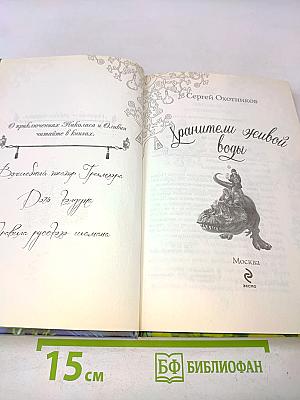 О приключениях Николаса и Оливии
читайте в книгах:
Волшебный театр Гримгора
Дать
Правила русского шамана
Сергей Охотников
Хранители живой
воды
Москва
ЭКСМО
15 см
БФ БИБЛИОФАН